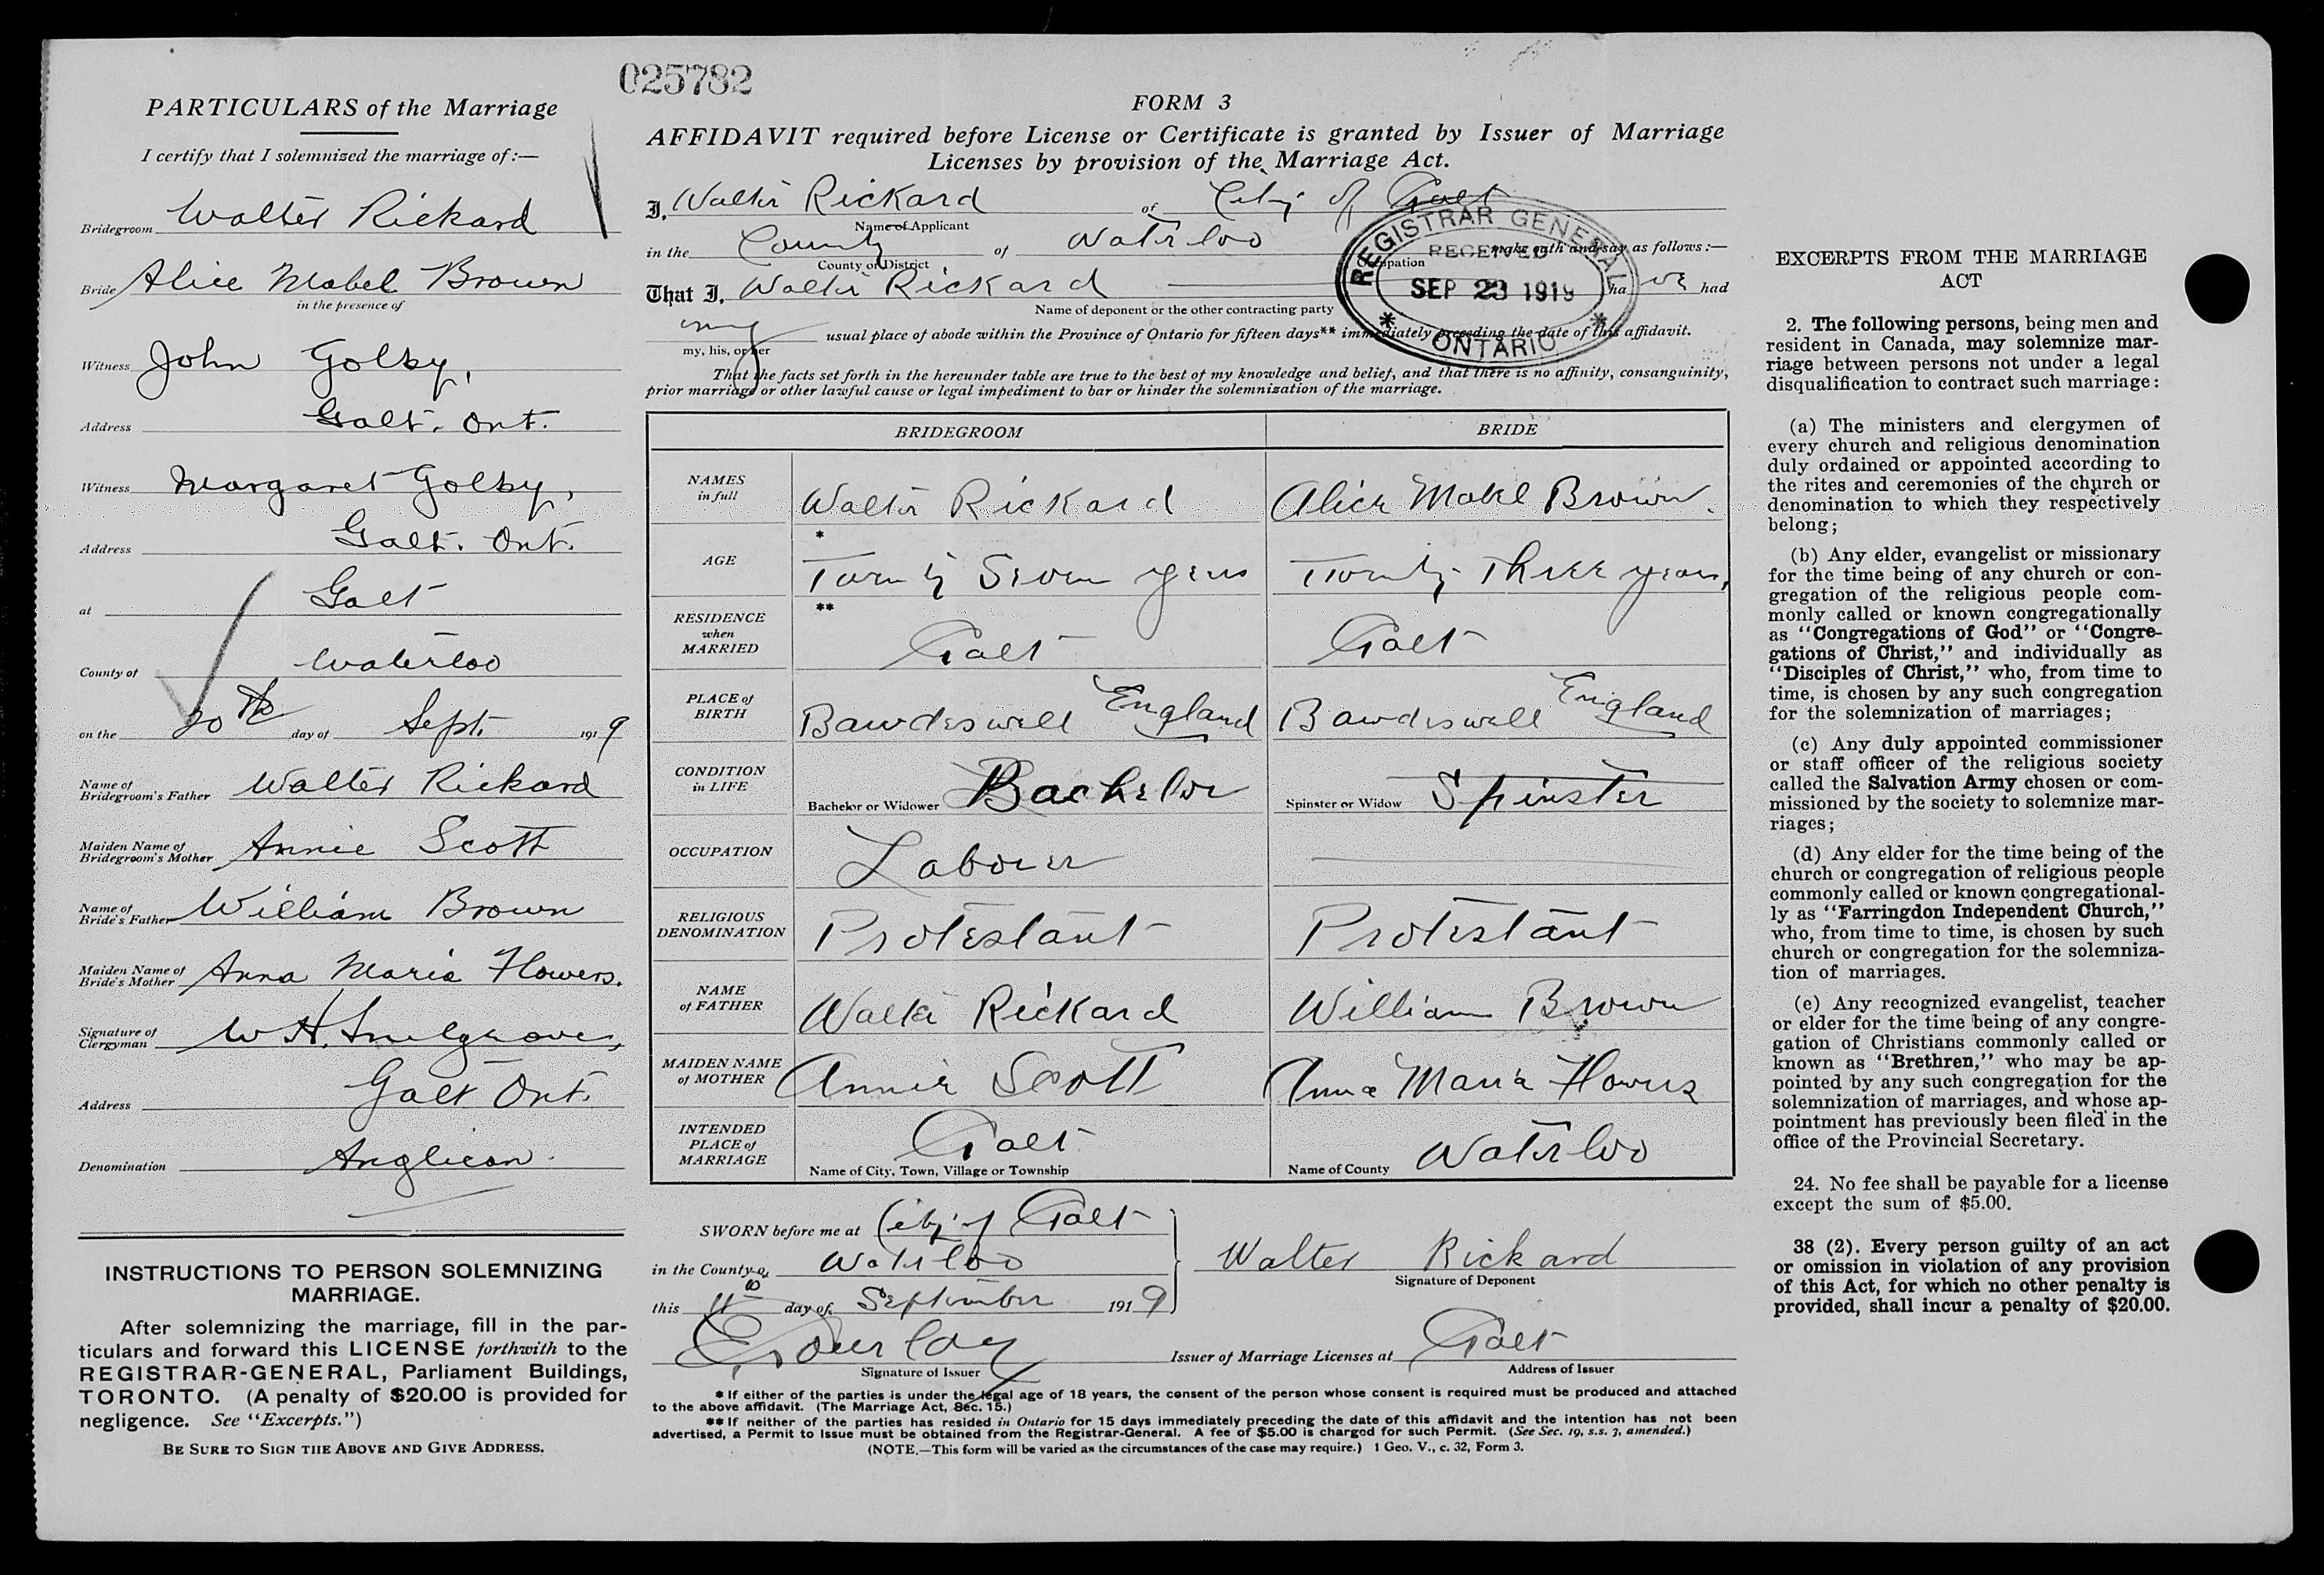 025782
PARTICULARS of the Marriage
I certify that I solemnized the marriage of:—
Bridegroom Walter Rickard
Bride Alice Mabel Brown
in the presence of
Witness John Golby,
Address Galt. Ont.
Witness Margaret Golby,
Address Galt. Ont.
at Galt
County of Waterloo
on the 20th day of Sept. 1919
Name of
Bridegroom's Father Walter Rickard
Maiden Name of
Bridegroom's Mother Annie Scott
Name of
Bride's Father William Brown
Maiden Name of
Bride's Mother Anna Maria Flowers.
Signature of
Clergyman W H. Snelgrove,
Address Galt Ont.
Denomination Anglican.
INSTRUCTIONS TO PERSON SOLEMNIZING
MARRIAGE.
After solemnizing the marriage, fill in the par-
ticulars and forward this LICENSE forthwith to the
REGISTRAR-GENERAL, Parliament Buildings,
TORONTO. (A penalty of $20.00 is provided for
negligence. See "Excerpts.")
BE SURE TO SIGN THE ABOVE AND GIVE ADDRESS.
FORM 3
AFFIDAVIT required before License or Certificate is granted by Issuer of Marriage
Licenses by provision of the Marriage Act.
I, Walter Rickard of City of Galt
Name of Applicant
in the County of Waterloo make oath and say as follows:—
County or District Occupation
That I, Walter Rickard ha ve had
Name of deponent or the other contracting party
my usual place of abode within the Province of Ontario for fifteen days** immediately preceding the date of this affidavit.
my, his, or her
REGISTRAR GENERAL
RECEIVED
SEP 23 1919
* ONTARIO *
That the facts set forth in the hereunder table are true to the best of my knowledge and belief, and that there is no affinity, consanguinity,
prior marriage or other lawful cause or legal impediment to bar or hinder the solemnization of the marriage.
BRIDEGROOM BRIDE
NAMES
in full Walter Rickard Alice Mabel Brown.
*
AGE Twenty Seven years Twenty Three years,
**
RESIDENCE
when
MARRIED Galt Galt
PLACE of
BIRTH Bawdeswell England Bawdeswell England
CONDITION
in LIFE Bachelor or Widower Bachelor Spinster or Widow Spinster
OCCUPATION Laborer
RELIGIOUS
DENOMINATION Protestant Protestant
NAME
of FATHER Walter Rickard William Brown
MAIDEN NAME
of MOTHER Annie Scott Anna Maria Flowers
INTENDED
PLACE of
MARRIAGE Galt Waterloo
Name of City, Town, Village or Township Name of County
SWORN before me at City of Galt
in the County of Waterloo
this 11th day of September 1919
Walter Rickard
Signature of Deponent
Signature of Issuer
Issuer of Marriage Licenses at Galt
Address of Issuer
* If either of the parties is under the legal age of 18 years, the consent of the person whose consent is required must be produced and attached
to the above affidavit. (The Marriage Act, Sec. 15.)
** If neither of the parties has resided in Ontario for 15 days immediately preceding the date of this affidavit and the intention has not been
advertised, a Permit to Issue must be obtained from the Registrar-General. A fee of $5.00 is charged for such Permit. (See Sec. 19, s.s. 7, amended.)
(NOTE.—This form will be varied as the circumstances of the case may require.) 1 Geo. V., c. 32, Form 3.
EXCERPTS FROM THE MARRIAGE
ACT
2. The following persons, being men and
resident in Canada, may solemnize mar-
riage between persons not under a legal
disqualification to contract such marriage:
(a) The ministers and clergymen of
every church and religious denomination
duly ordained or appointed according to
the rites and ceremonies of the church or
denomination to which they respectively
belong;
(b) Any elder, evangelist or missionary
for the time being of any church or con-
gregation of the religious people com-
monly called or known congregationally
as "Congregations of God" or "Congre-
gations of Christ," and individually as
"Disciples of Christ," who, from time to
time, is chosen by any such congregation
for the solemnization of marriages;
(c) Any duly appointed commissioner
or staff officer of the religious society
called the Salvation Army chosen or com-
missioned by the society to solemnize mar-
riages;
(d) Any elder for the time being of the
church or congregation of religious people
commonly called or known congregational-
ly as "Farringdon Independent Church,"
who, from time to time, is chosen by such
church or congregation for the solemniza-
tion of marriages.
(e) Any recognized evangelist, teacher
or elder for the time being of any congre-
gation of Christians commonly called or
known as "Brethren," who may be ap-
pointed by any such congregation for the
solemnization of marriages, and whose ap-
pointment has previously been filed in the
office of the Provincial Secretary.
24. No fee shall be payable for a license
except the sum of $5.00.
38 (2). Every person guilty of an act
or omission in violation of any provision
of this Act, for which no other penalty is
provided, shall incur a penalty of $20.00.